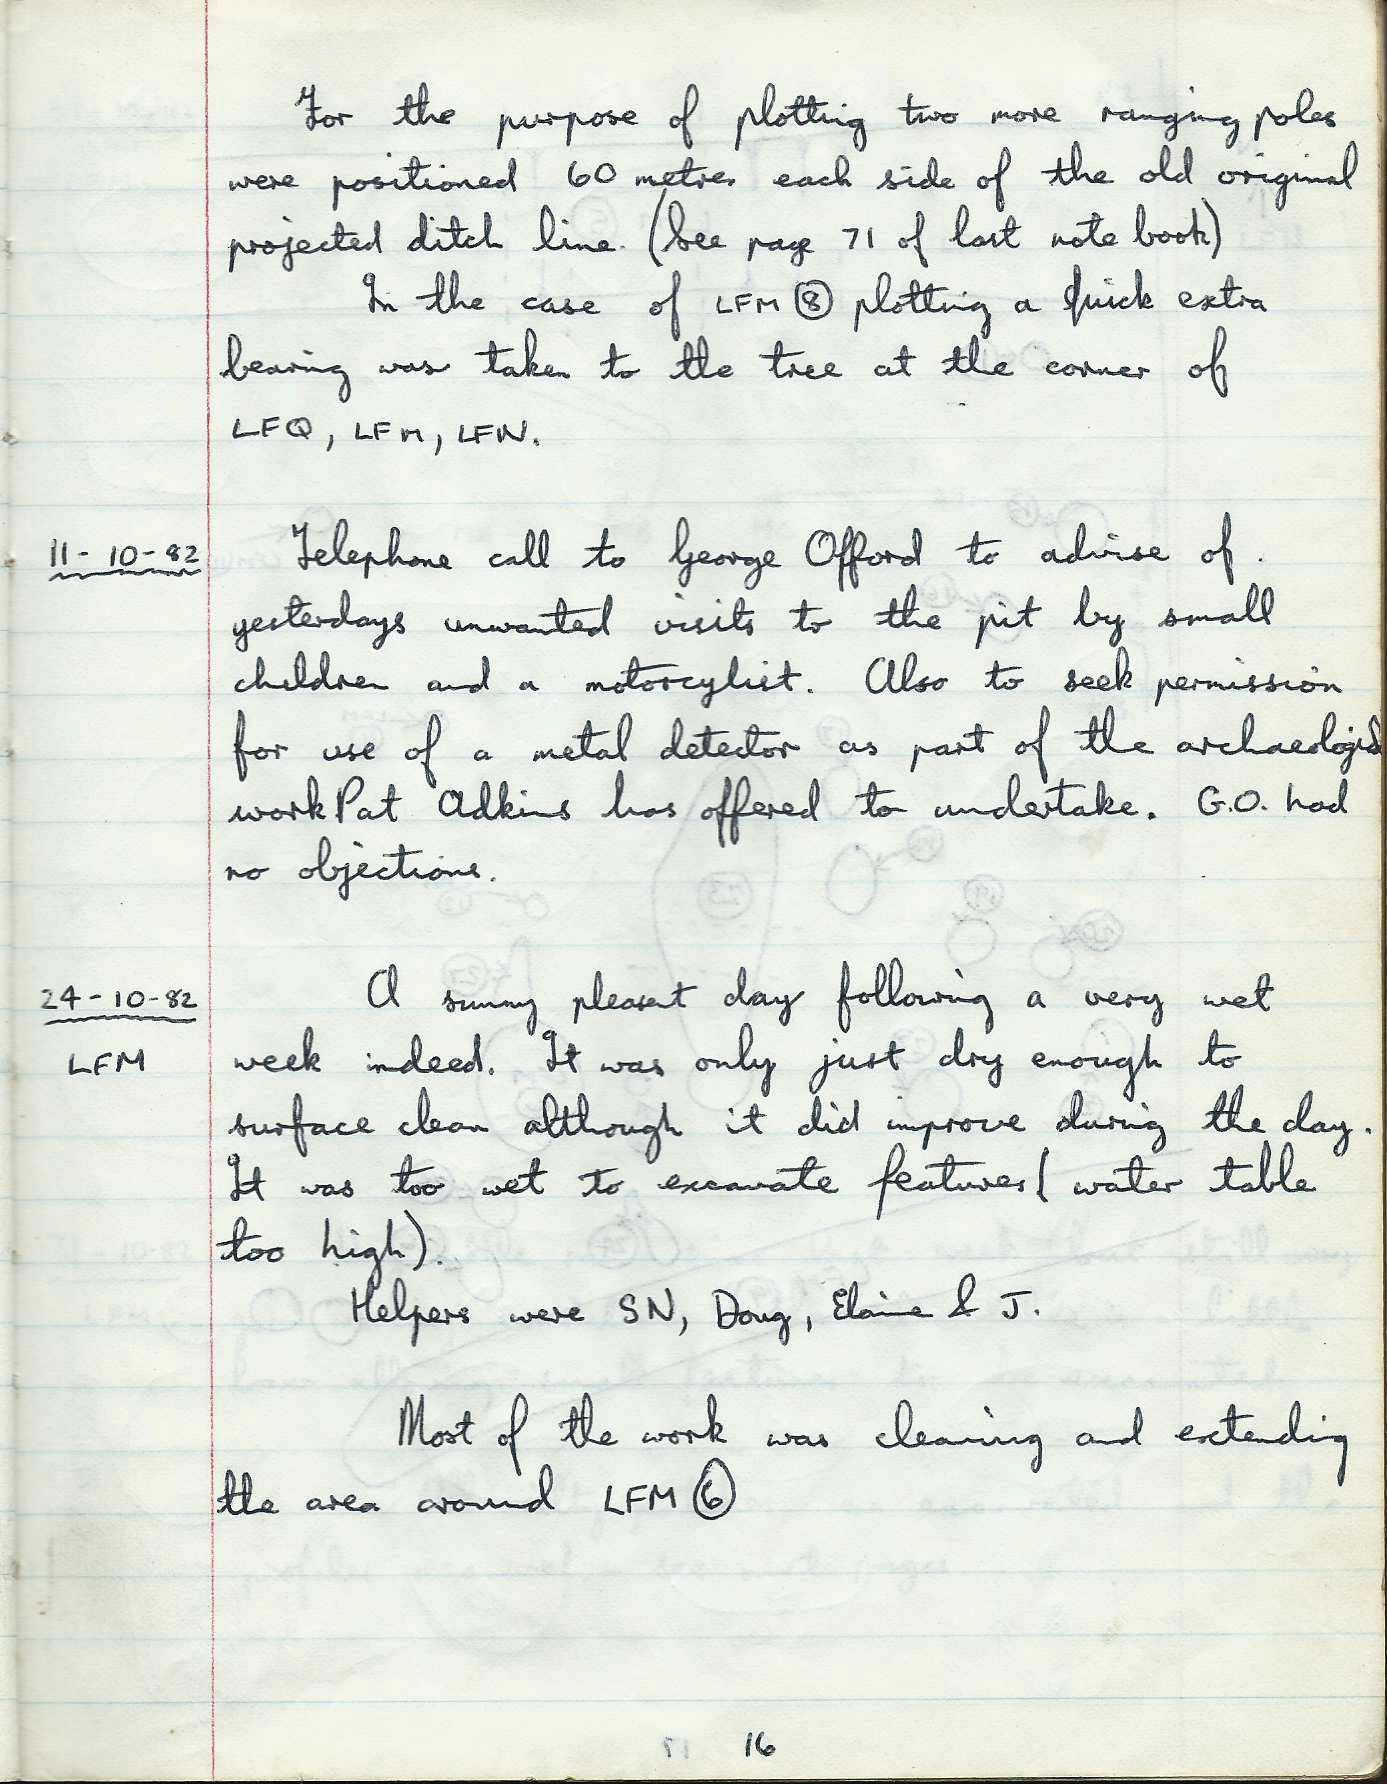 For the purpose of plotting two more ranging poles
were positioned 60 metres each side of the old original
projected ditch line. (See page 71 of last note book)
In the case of LFM ⑧ plotting a quick extra
bearing was taken to the tree at the corner of
LFQ, LFM, LFN.
11-10-82 Telephone call to George Offord to advise of
yesterdays unwanted visits to the pit by small
children and a motorcylist. Also to seek permission
for use of a metal detector as part of the
work Pat Adkins has offered to undertake. G.O. had
no objections.
24-10-82 A sunny pleasent day following a very wet
LFM week indeed. It was only just dry enough to
surface clean although it did improve during the day.
It was too wet to excavate features (water table
too high).
Helpers were SN, Doug, Elaine & J.
Most of the work was cleaning and extending
the area around LFM ⑥
16